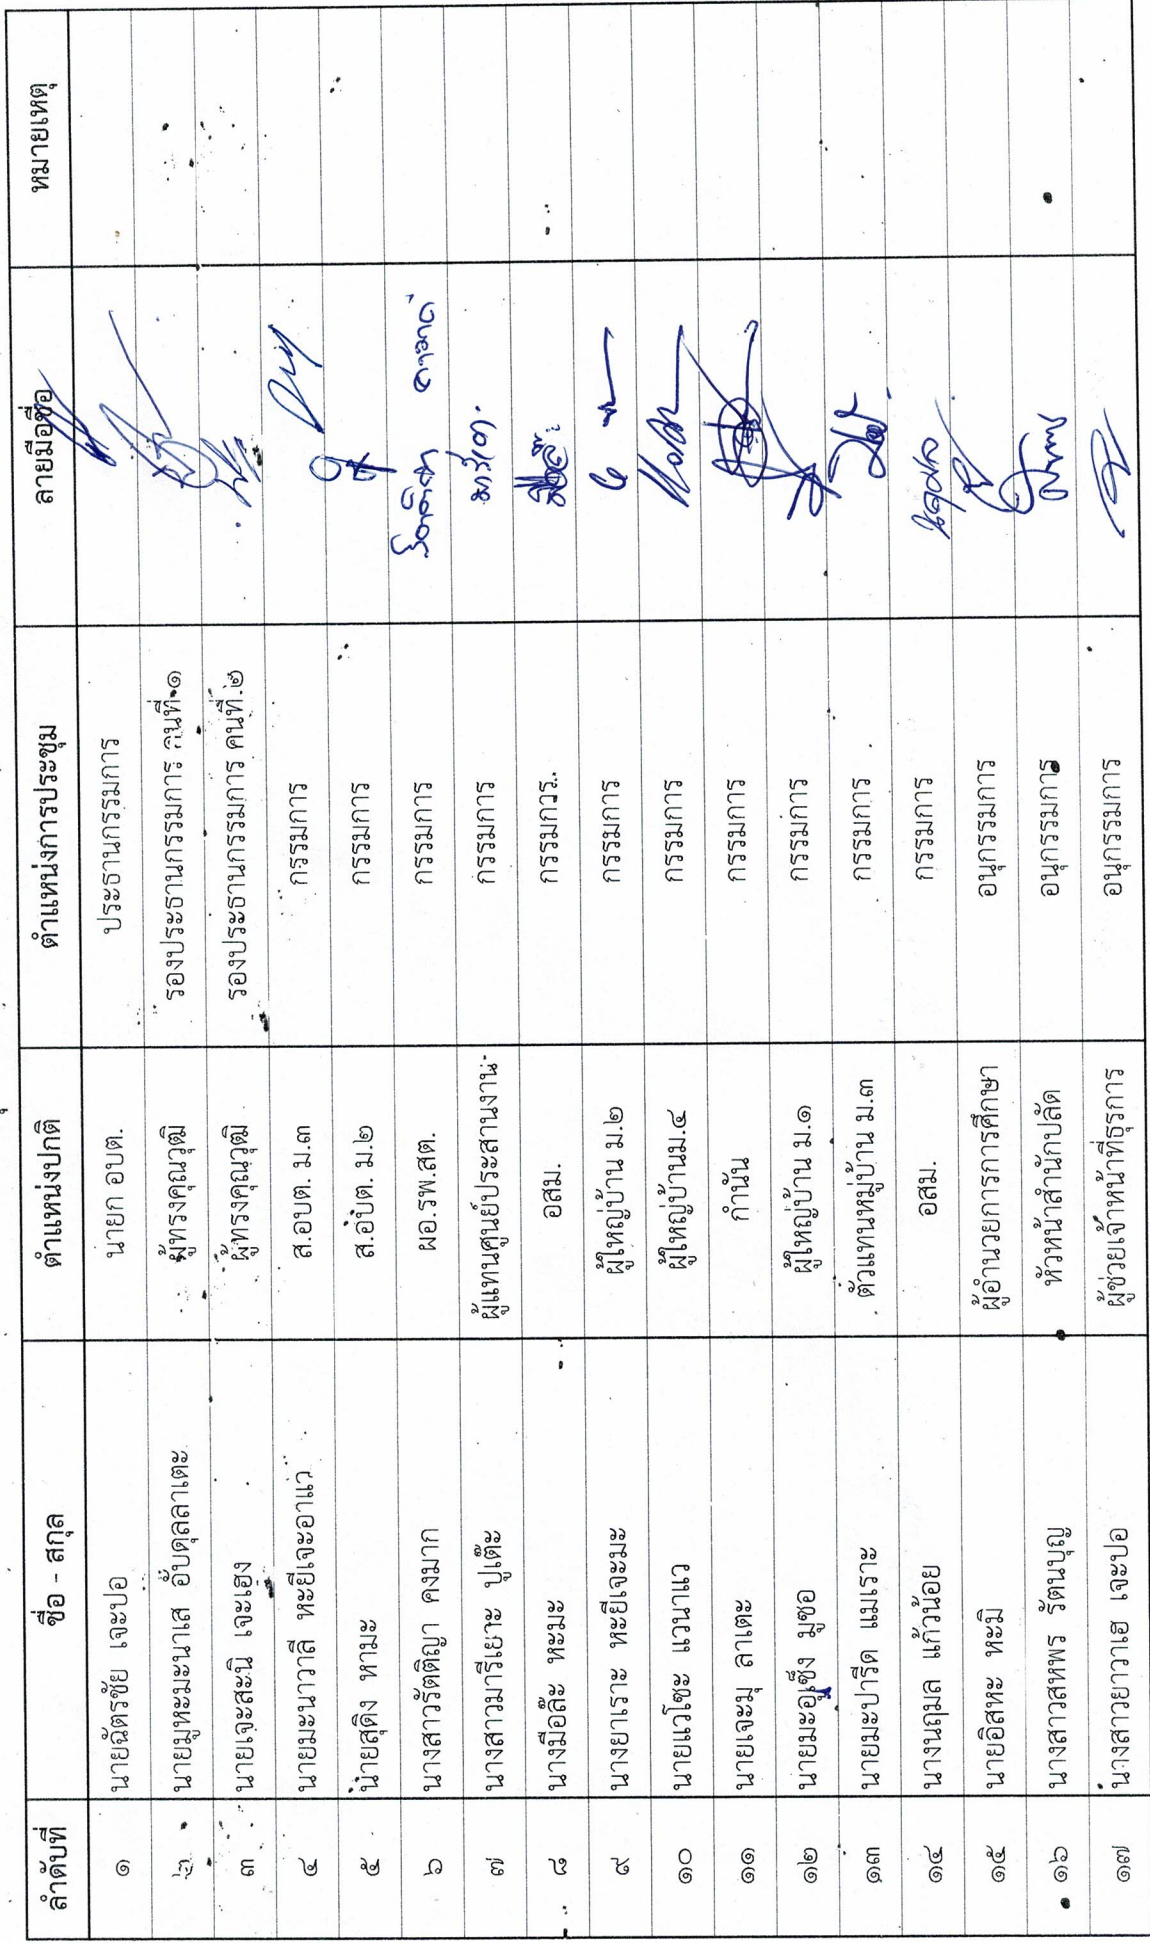 ลำดับที่ ชื่อ - สกุล ตำแหน่งปกติ ตำแหน่งการประชุม ลายมือชื่อ หมายเหตุ
๑ นายฉัตรชัย เจะปอ นายก อบต. ประธานกรรมการ
๒ นายมูหะมะนาเส อับดุลลาเตะ ผู้ทรงคุณวุฒิ รองประธานกรรมการ คนที่ ๑
๓ นายเจะสะนิ เจะเฮง ผู้ทรงคุณวุฒิ รองประธานกรรมการ คนที่ ๒
๔ นายมะนาวาลี หะยีเจะอาแว ส.อบต. ม.๓ กรรมการ
๕ นายสุดิง หามะ ส.อบต. ม.๒ กรรมการ
๖ นางสาวรัตติญา คงมาก ผอ.รพ.สต. กรรมการ
๗ นางสาวมารีเยาะ ปูเต๊ะ ผู้แทนศูนย์ประสานงาน กรรมการ
๘ นางมีอล๊ะ หะมะ อสม. กรรมการ
๙ นางยาเราะ หะยีเจะมะ ผู้ใหญ่บ้าน ม.๒ กรรมการ
๑๐ นายแวโซะ แวนาแว ผู้ใหญ่บ้านม.๔ กรรมการ
๑๑ นายเจะมุ ลาเตะ กำนัน กรรมการ
๑๒ นายมะอูเซ็ง มูซอ ผู้ใหญ่บ้าน ม.๑ กรรมการ
๑๓ นายมะปารีด แมเราะ ตัวแทนหมู่บ้าน ม.๓ กรรมการ
๑๔ นางนฤมล แก้วน้อย อสม. กรรมการ นฤมล
๑๕ นายอิสหะ หะมิ ผู้อำนวยการการศึกษา อนุกรรมการ
๑๖ นางสาวสหพร รัตนบุญ หัวหน้าสำนักปลัด อนุกรรมการ
๑๗ นางสาวยาวาเฮ เจะปอ ผู้ช่วยเจ้าหน้าที่ธุรการ อนุกรรมการ